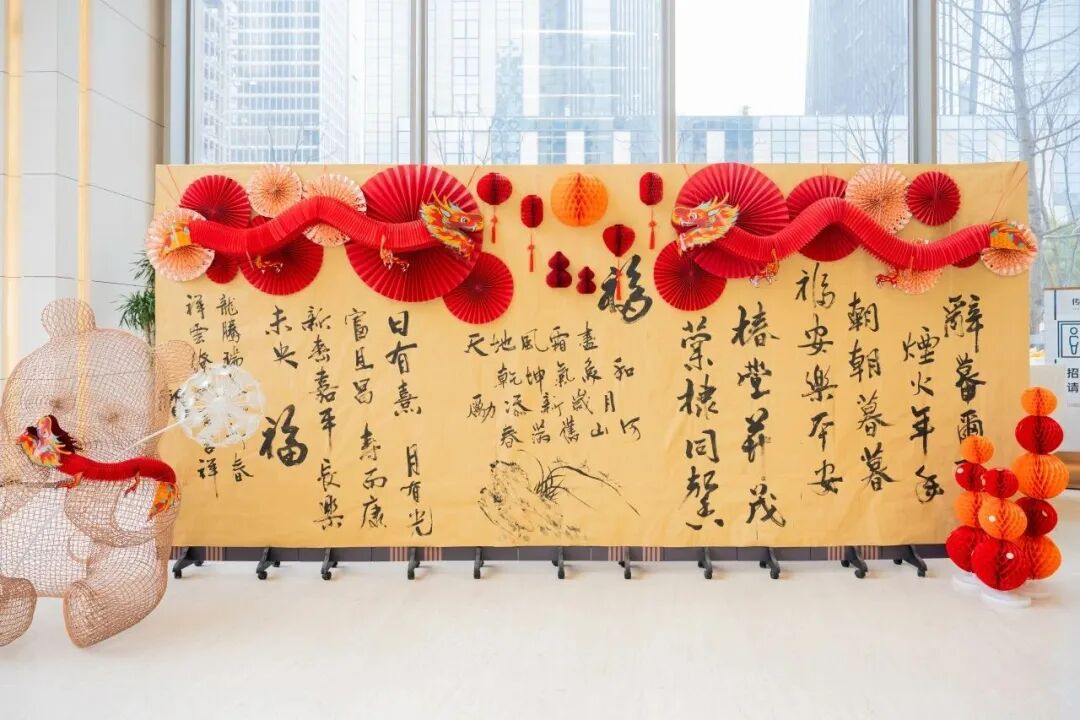 辭暮爾
煙火年年
朝朝暮暮
福安樂 安
椿萱并茂
棠棣同馨
福
天地風霜盡
乾坤氣象和
勵添新歲月
春滿舊山河
日有熹 月有光
富且昌 壽而康
新春嘉平 長樂
未央
福
龍騰瑞 春
祥雲 祥
招
请